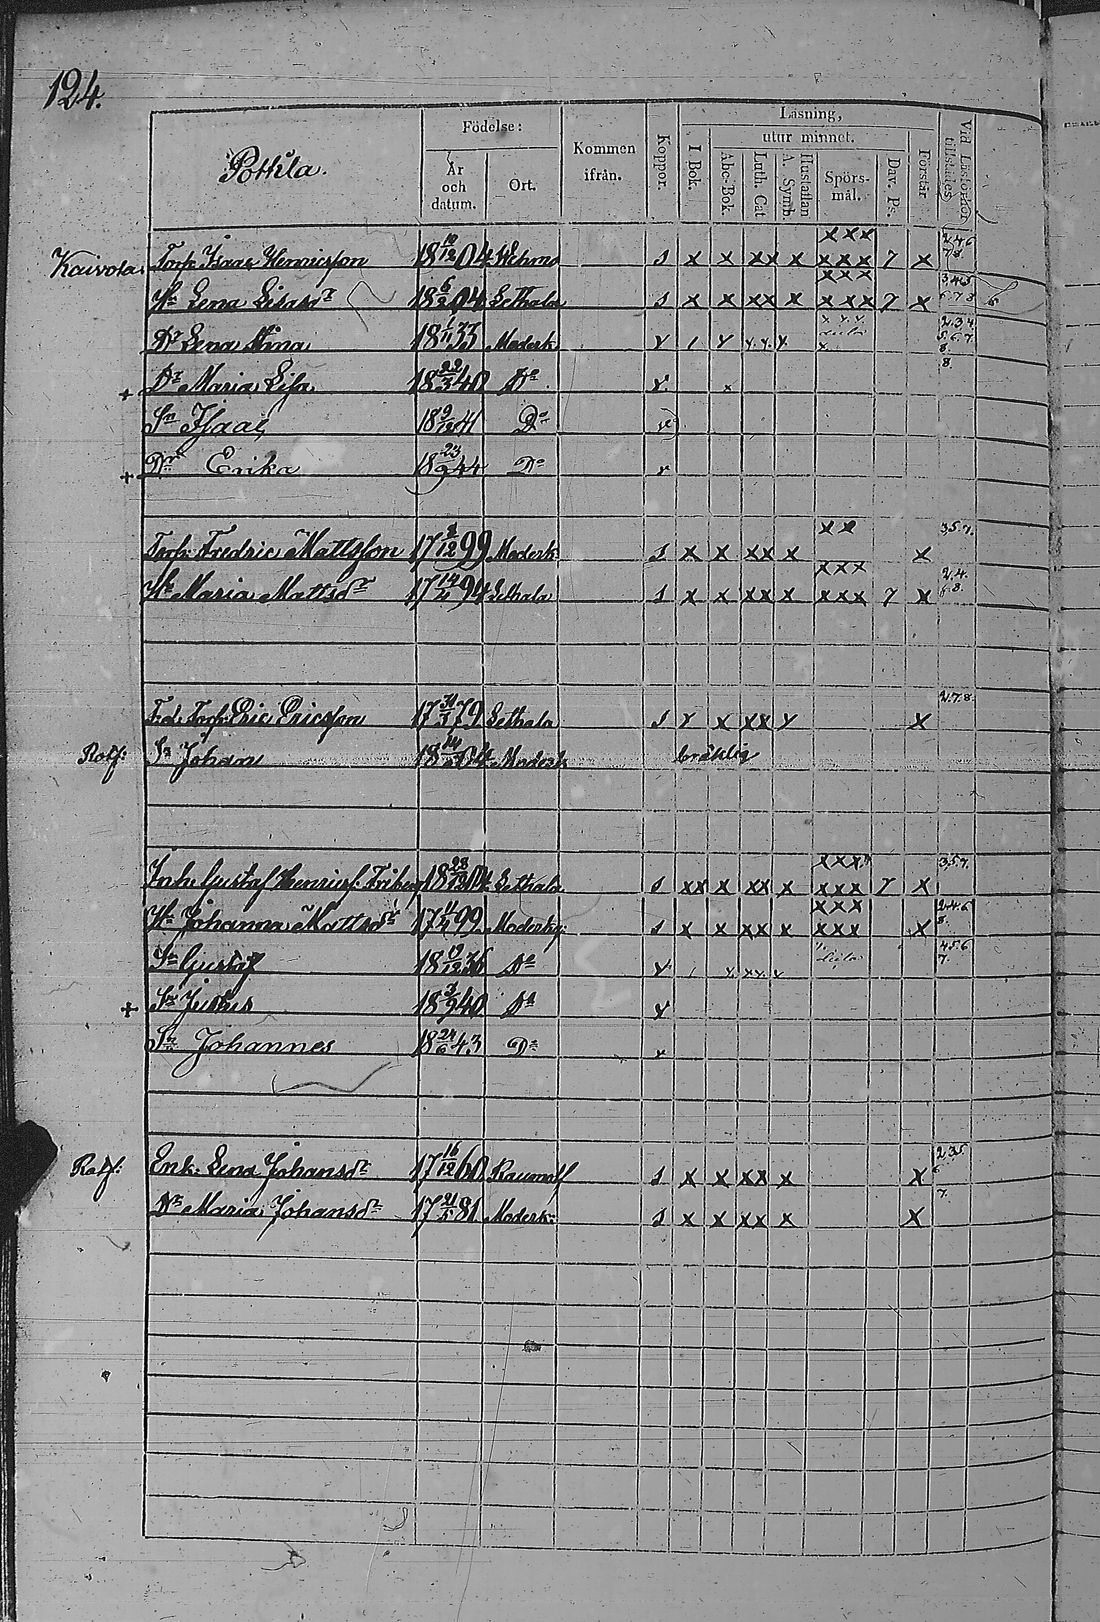 124.
Pothla.
Födelse:
År och datum.
Ort.
Kommen ifrån.
Koppor.
Läsning,
utur minnet.
I Bok.
Abc-Bok.
Luth. Cat
A. Symb.
Hustaflan
Spörs-mål.
Dav. Ps.
Förstår
Vid Läsförhör tillstädes
Kaivola. Torp. Isaac Henricsson 18 10/12 04 Wehmo s x x xx x xxx xxx 7 x 2.4.6. 7.8
Hu Lena Lisasdr 18 6/2 04 Lethala s x x xx x xxx xxx 7 x 3.4.5 6.7.8
Dr Lena Stina 18 1/11 33 Moderk 2.3.4. 5.6.7. 8.
+ Dr Maria Lisa 18 22/3 40 Do
Sn Isaac 18 9/12 41 Do
+ Dr Erika 18 23/9 44 Do
Torp. Fredric Mattsson 17 8/12 99 Moderk s x x xx x xx x 3.5.7.
Hu Maria Mattsdr 17 14/4 94 Lethala s x x xx x xxx xxx 7 x 2.4. 6.8.
F.d. Torp. Eric Ericsson 17 31/3 79 Lethala s x x xx x x 2.7.8.
Rotf: Sn Johan 18 04 Moderk bräklig
Inh. Gustaf Henricss. Friberg 18 28/12 04 Lethala s xx x xx x xxx xxx 7 x 3.5.7.
Hu Johanna Mattsdr 17 11/4 99 Moderk s x x xx x xxx xxx x 2.4.6 8.
Sn Gustaf 18 19/12 36 Do 4.5.6 7.
+ Sn Julius 18 3/9 40 Do
Sn Johannes 18 24/6 43 Do
Rotf: Enk. Lena Johansdr 17 16/12 60 Raumo s x x xx x x 2.3.5. 6
Dr Maria Johansdr 17 21/5 81 Moderk s x x xx x x 7.